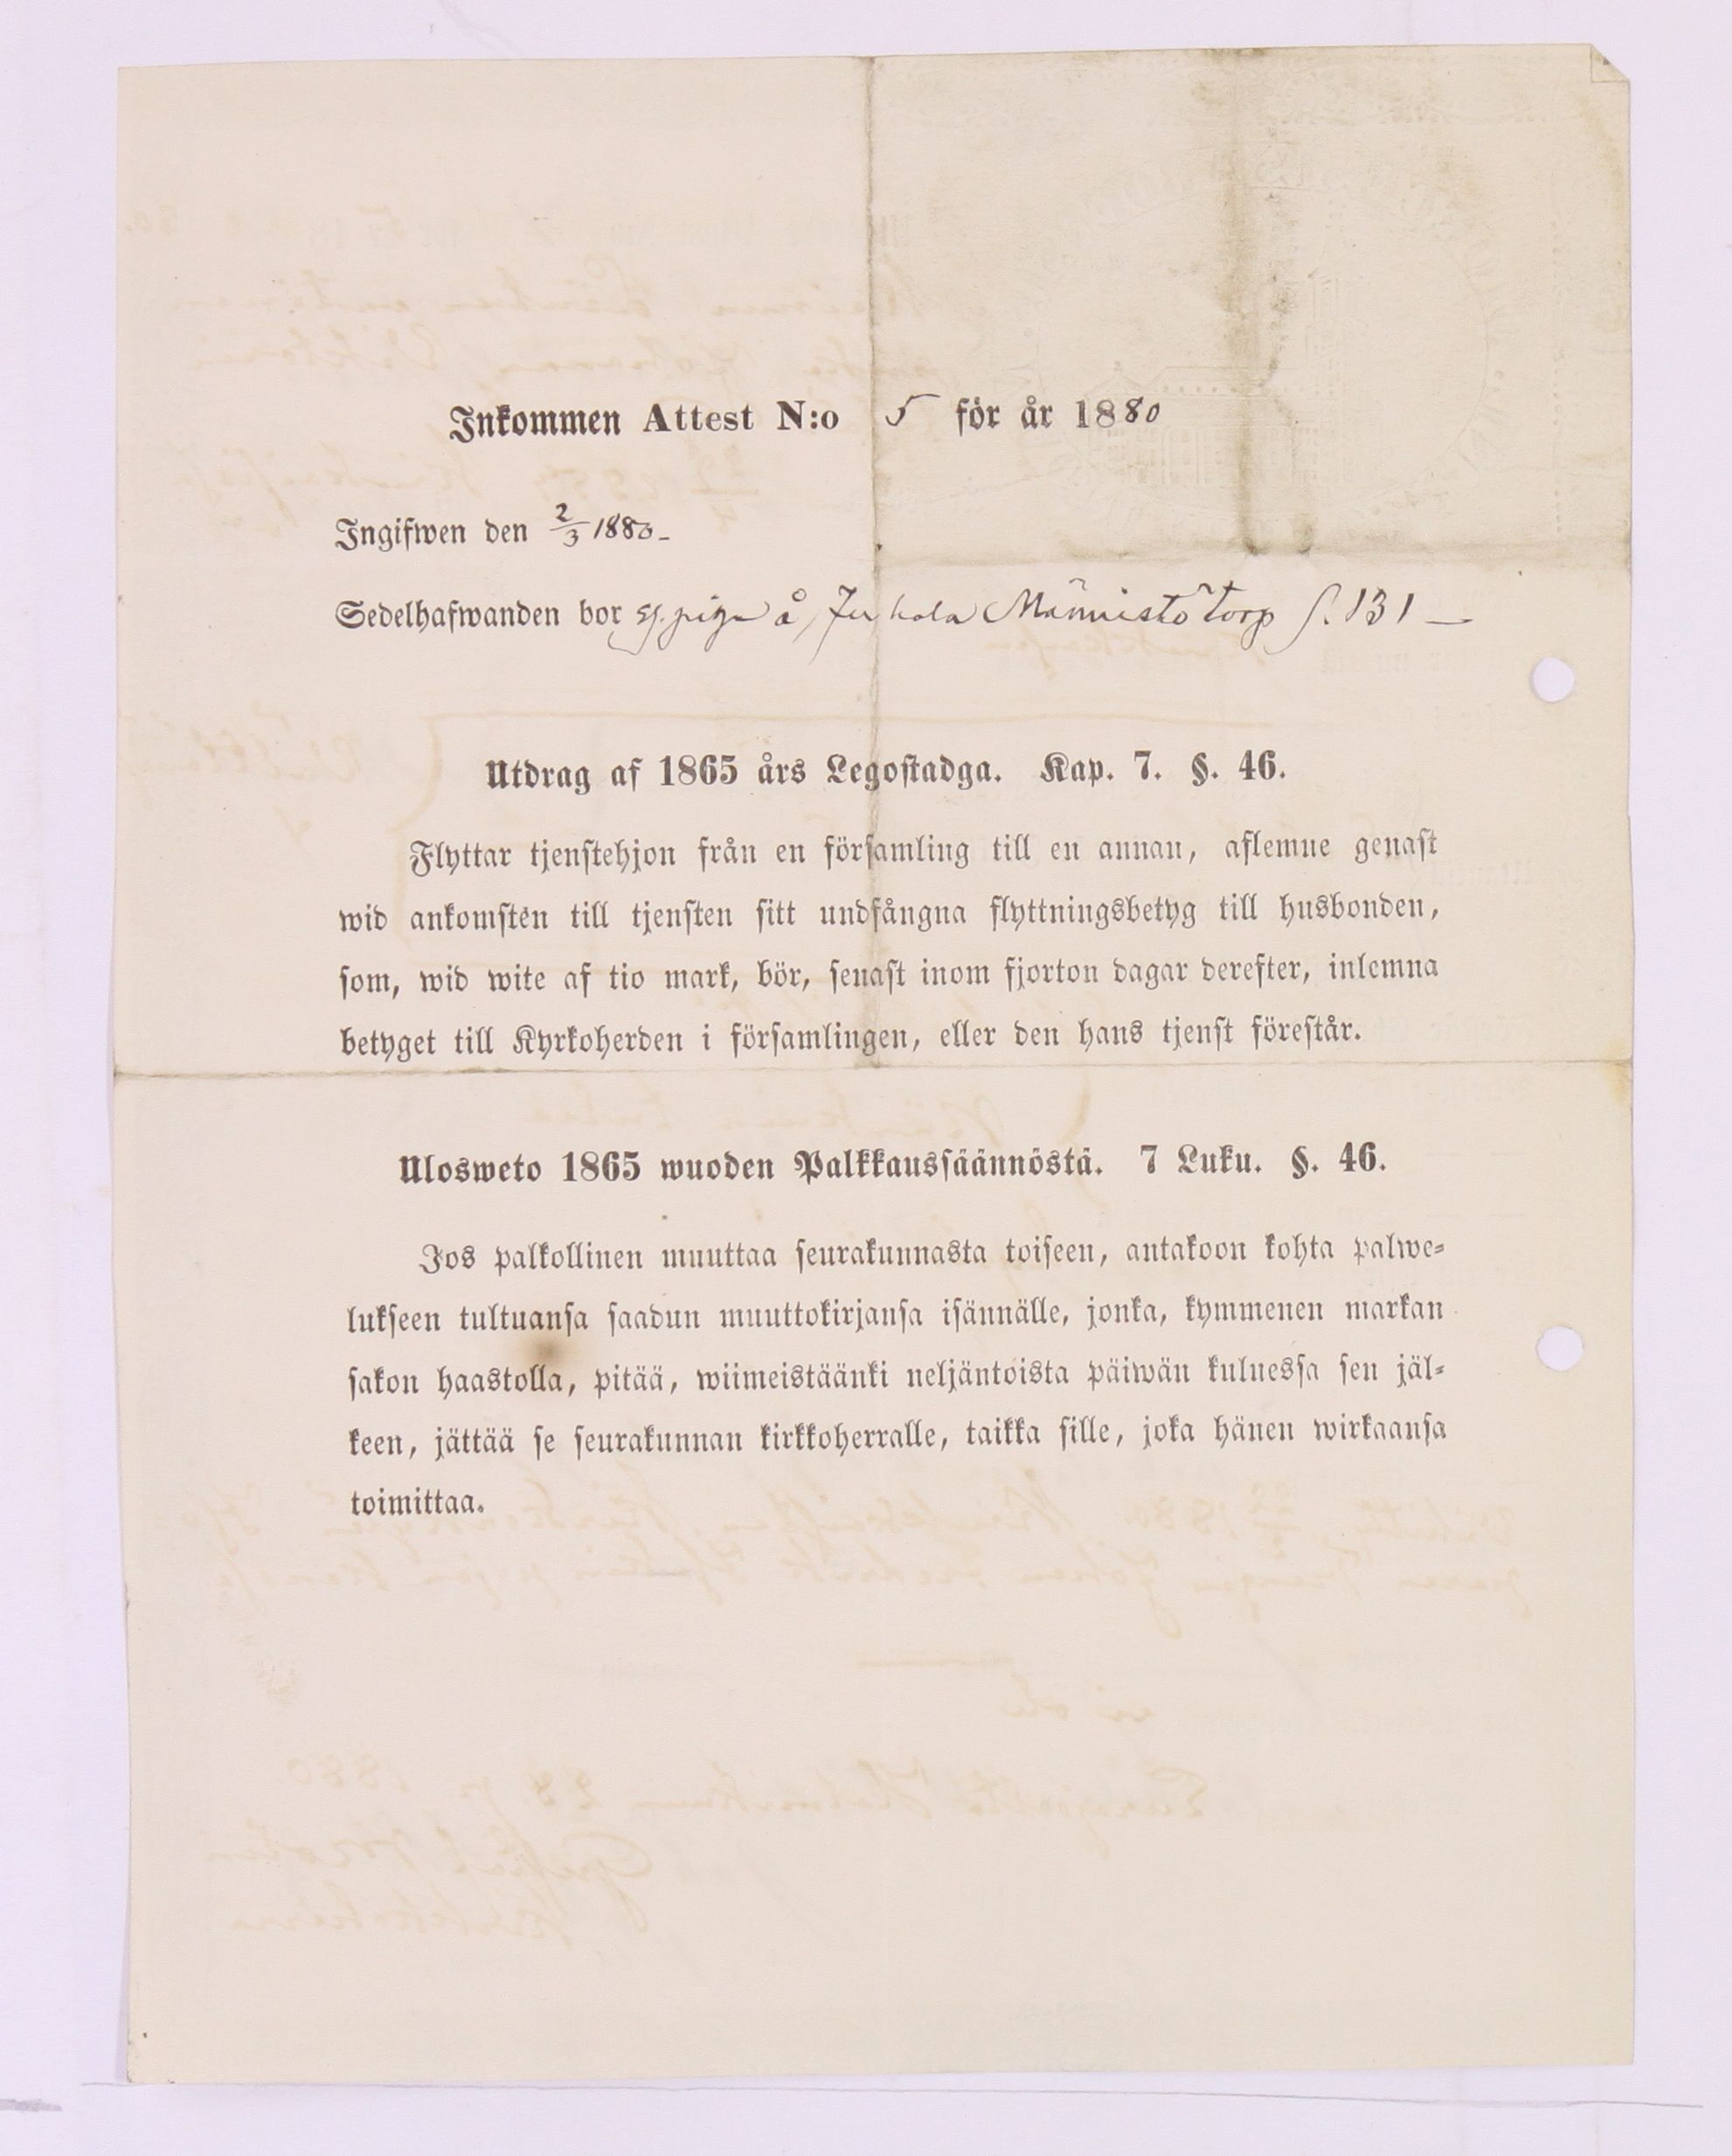 Inkommen Attest N:o 5 för år 1880
Ingifwen den 2/3 1880-
Sedelhafwanden bor å Männistö torp S. 131 —
Utdrag af 1865 års Legostadga. Kap. 7. §. 46.
Flyttar tjenstehjon från en församling till en annan, aflemne genast
wid ankomsten till tjensten sitt undfångna flyttningsbetyg till husbonden,
som, wid wite af tio mark, bör, senast inom fjorton dagar derefter, inlemna
betyget till Kyrkoherden i församlingen, eller den hans tjenst förestår.
Ulosweto 1865 wuoden Palkkaussäännöstä. 7 Luku. §. 46.
Jos palkollinen muuttaa seurakunnasta toiseen, antakoon kohta palwe=
lukseen tultuansa saadun muuttokirjansa isännälle, jonka, kymmenen markan
sakon haastolla, pitää, wiimeistäänki neljäntoista päiwän kuluessa sen jäl=
keen, jättää se seurakunnan kirkkoherralle, taikka sille, joka hänen wirkaansa
toimittaa.